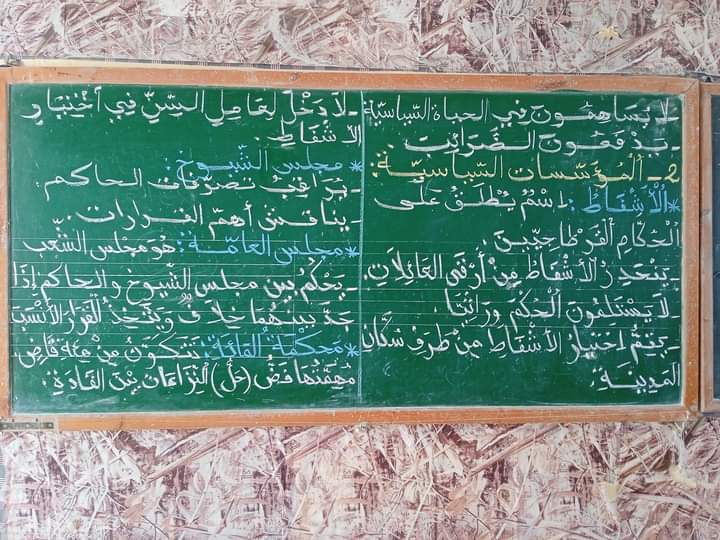 لا يساهمون في الحياة السّياسيّة
- يدفعون الضّرائب
2- المؤسّسات السّياسيّة:
* الأشفاط: اسم يطلق على
الحكّام القرطاجيّين.
- ينحدر الأشفاط من أرقى العائلات.
- لا يستلمون الحكم وراثيا.
- يتمّ اختيار الأشفاط من طرف سكّان
المدينة.
- لا دخل لعامل السّنّ في اختيار
الأشفاط.
* مجلس الشّيوخ:
- يراقب تصرّفات الحاكم.
- يناقش أهمّ القرارات.
* مجلس العامّة: هو مجلس الشّعب
- يحكم بين مجلس الشّيوخ والحاكم إذا
جدّ بينهما خلاف ويتّخذ القرار الأنسب
* محكمة المائة: تتكوّن من قاض.
مهمّتها فضّ (حلّ) النّزاعات بين القادة.